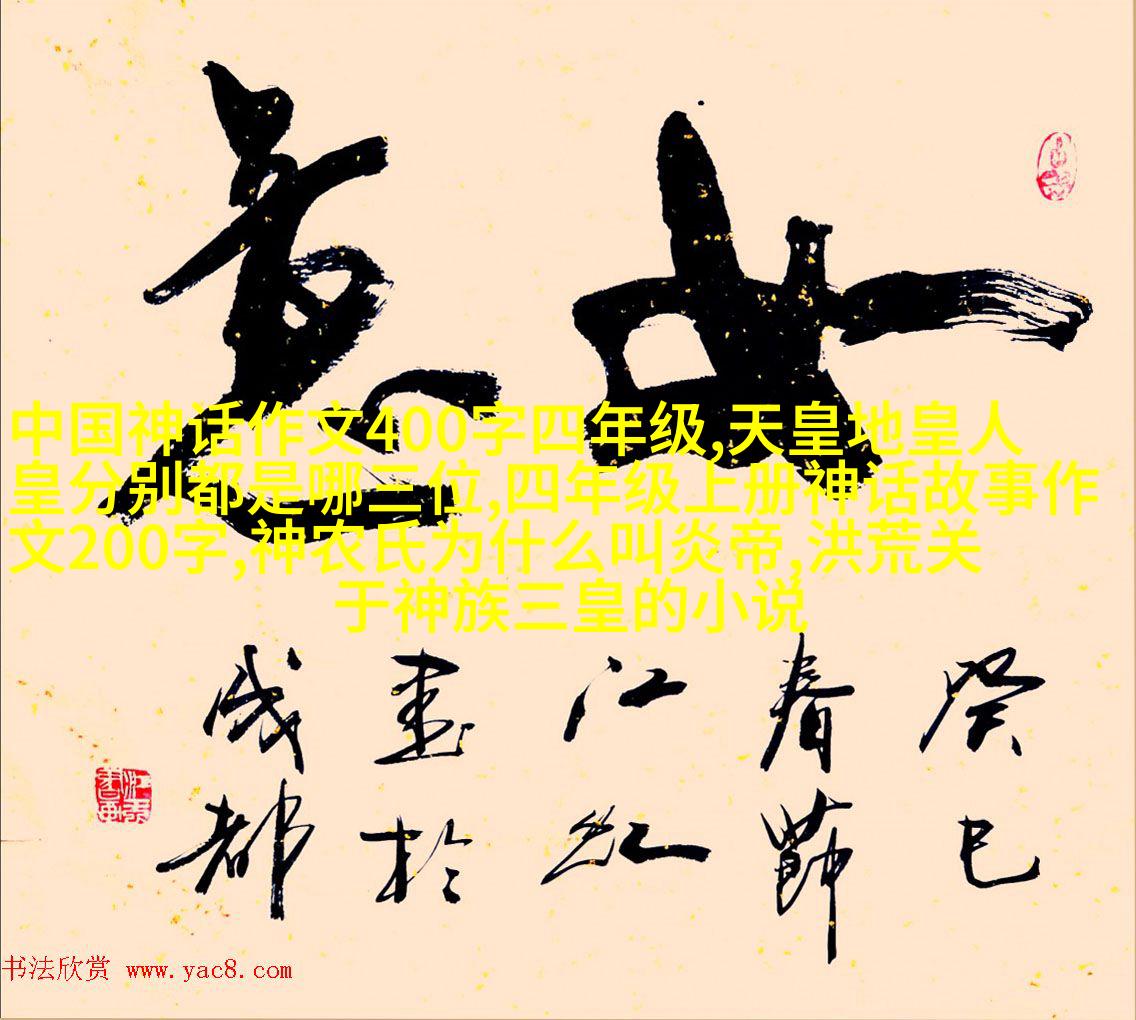 如意
中国神话作文400字四年级,天皇地皇人
皇分别都是哪三位,四年级上册神话故事作
文200字,神农氏为什么叫炎帝,洪荒关
于神族三皇的小说
癸巳
春節
江红
書於
成都
书法欣赏 www.yac8.com